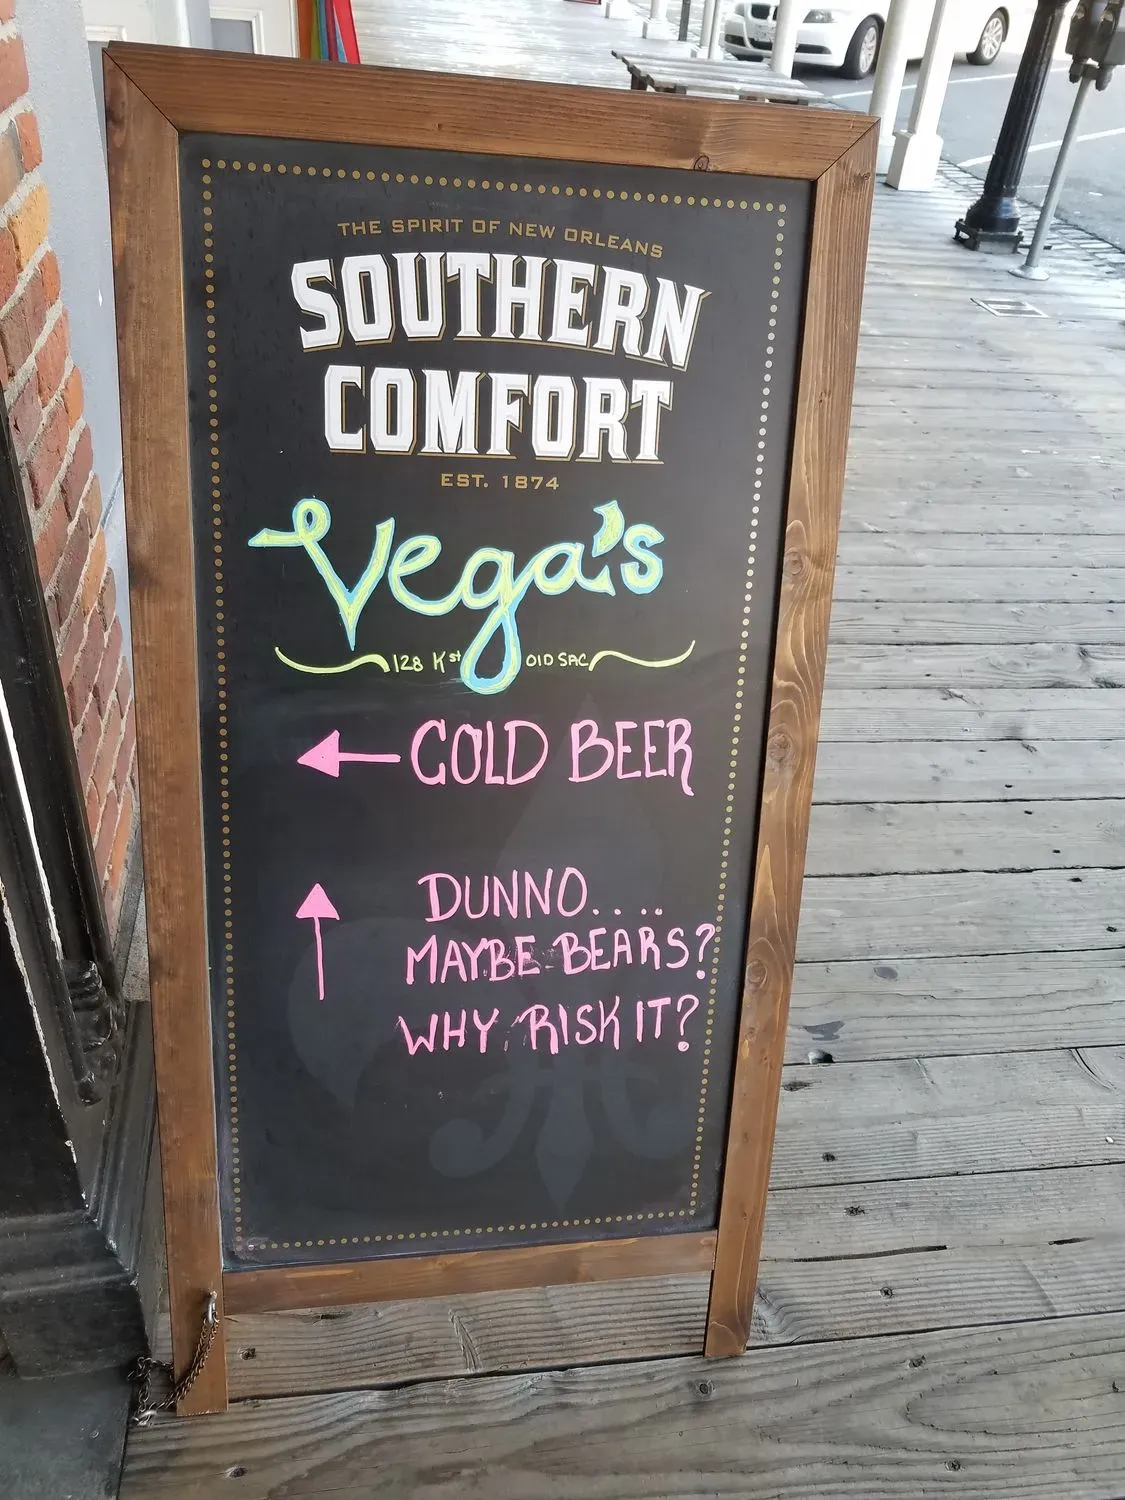 THE SPIRIT OF NEW ORLEANS
SOUTHERN
COMFORT
EST. 1874
Vega's
128 K st OLD SAC
COLD BEER
DUNNO.....
MAYBE BEARS?
WHY RISK IT?